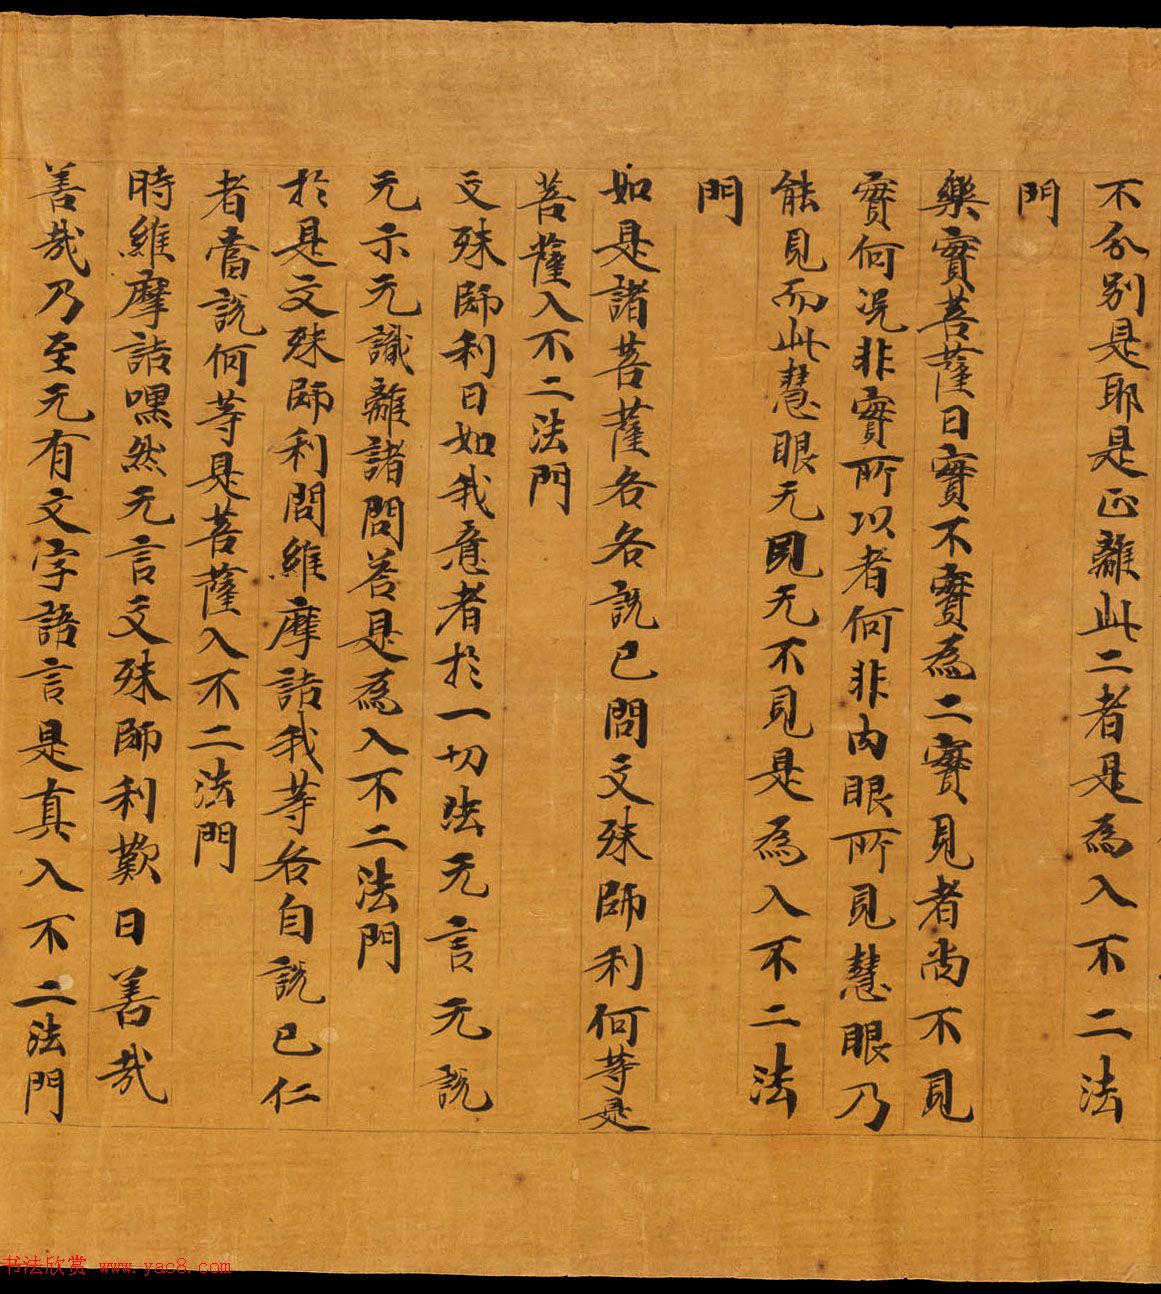 不分別是耶是正離此二者是為入不二法
門
樂實菩薩曰實不實為二實見者尚不見
實何況非實所以者何非肉眼所見慧眼乃
能見而此慧眼无見无不見是為入不二法
門
如是諸菩薩各各說已問文殊師利何等是
菩薩入不二法門
文殊師利曰如我意者於一切法无言无說
无示无識離諸問答是為入不二法門
於是文殊師利問維摩詰我等各自說已仁
者當說何等是菩薩入不二法門
時維摩詰嘿然无言文殊師利歎曰善哉
善哉乃至无有文字語言是真入不二法門
书法欣赏 www.yac8.com